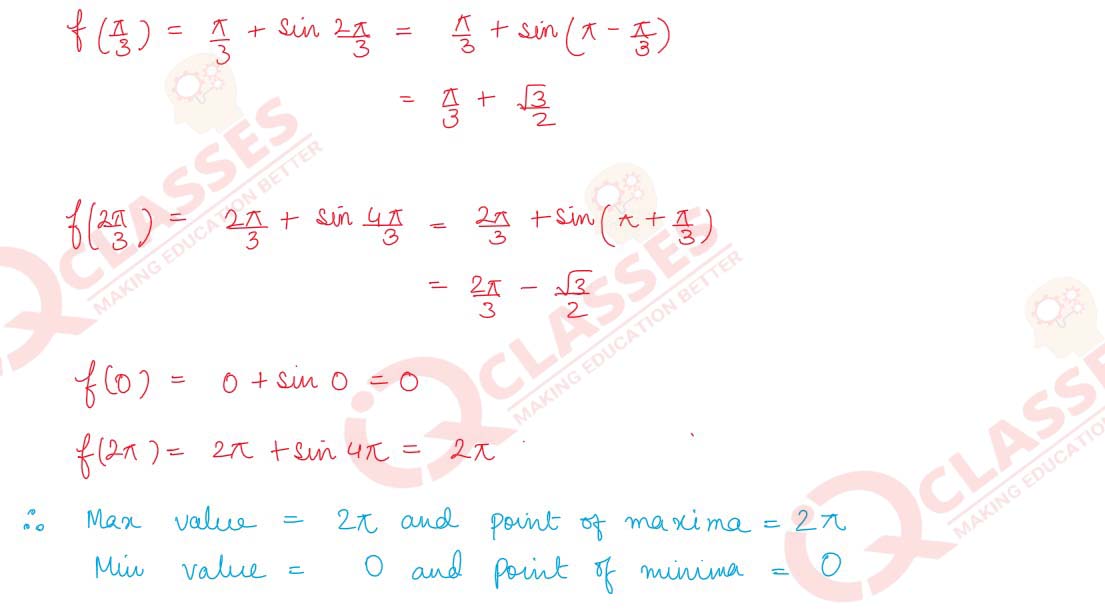 f(π/3) = π/3 + sin 2π/3 = π/3 + sin(π - π/3)
= π/3 + √3/2
f(2π/3) = 2π/3 + sin 4π/3 = 2π/3 + sin(π + π/3)
= 2π/3 - √3/2
f(0) = 0 + sin 0 = 0
f(2π) = 2π + sin 4π = 2π
∴ Max value = 2π and point of maxima = 2π
Min value = 0 and point of minima = 0
IQ CLASSES
MAKING EDUCATION BETTER
IQ CLASSES
MAKING EDUCATION BETTER
IQ CLASSES
MAKING EDUCATION